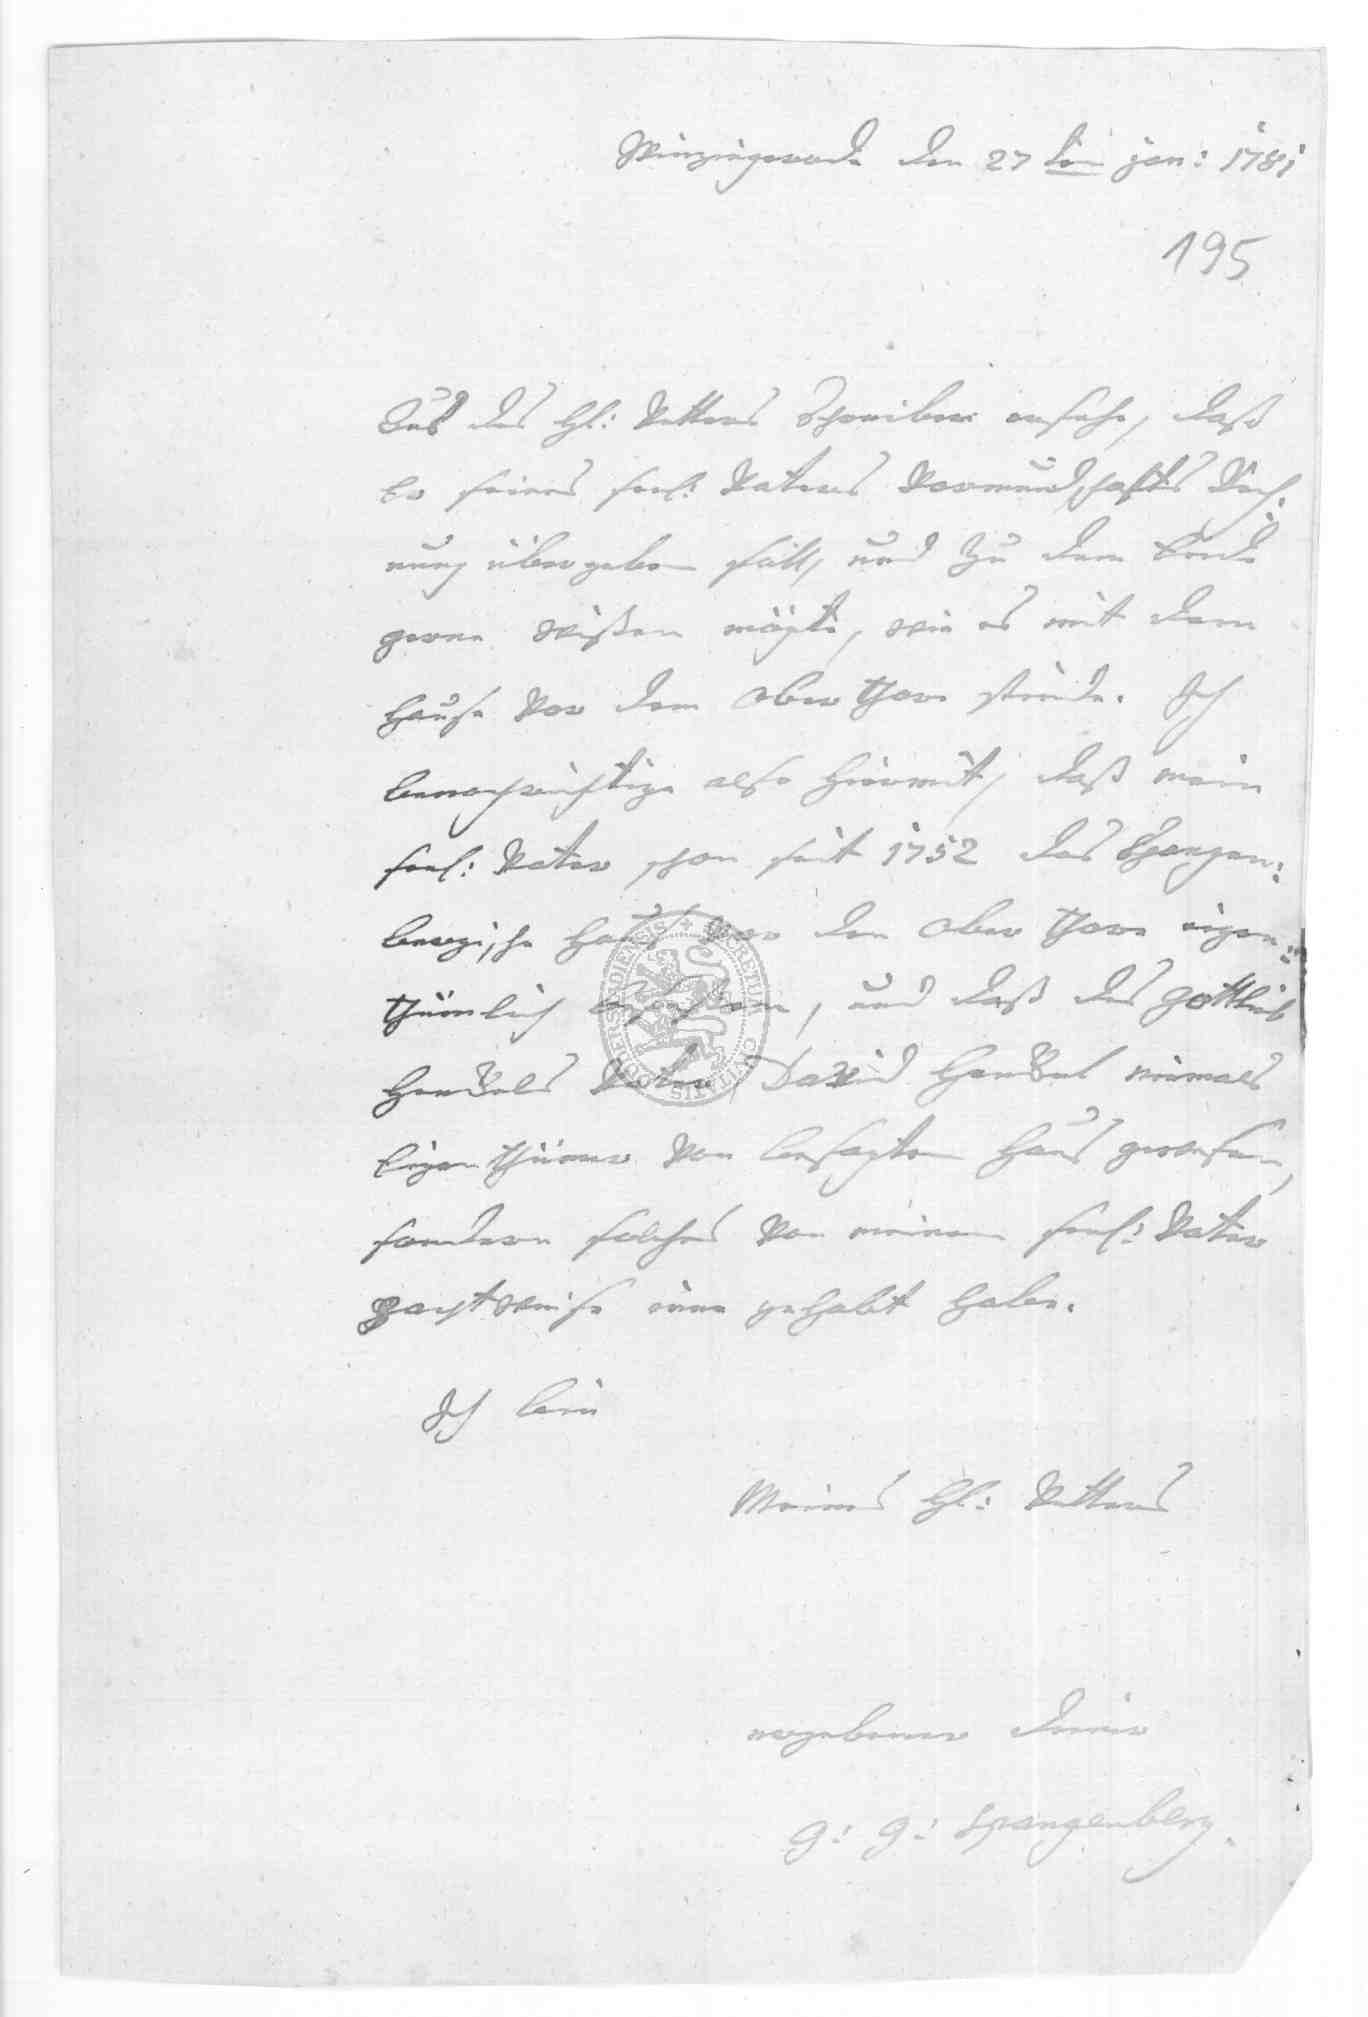 Winzingerode den 27 ten Jan: 1781
195
Aus des H: Vetters Schreiben ersehe, daß
Er seines seel: Vaters Vormundschafts Rech-
nung übergeben soll, und zu dem Ende
gerne wißen mögte, wie es mit dem
Hause vor dem Ober Thore stünde. Ich
benachrichtige also hiermit, daß mein
seel: Vater schon seit 1752 das Spangen:
bergische Haus vor den Ober Thore eigen:
thümlich besessen, und daß des Gottlieb
Henckels Vater, David Henckel niemals
Eigenthümer von besagten Haus gewesen,
sondern solches von meinem seel: Vater
pachtweise inne gehabt habe.
Ich bin
Meines H: Vetters
ergebener Diener
G: G: Spangenberg.
SECRETUM CIVITATIS DUDERSTADIENSIS